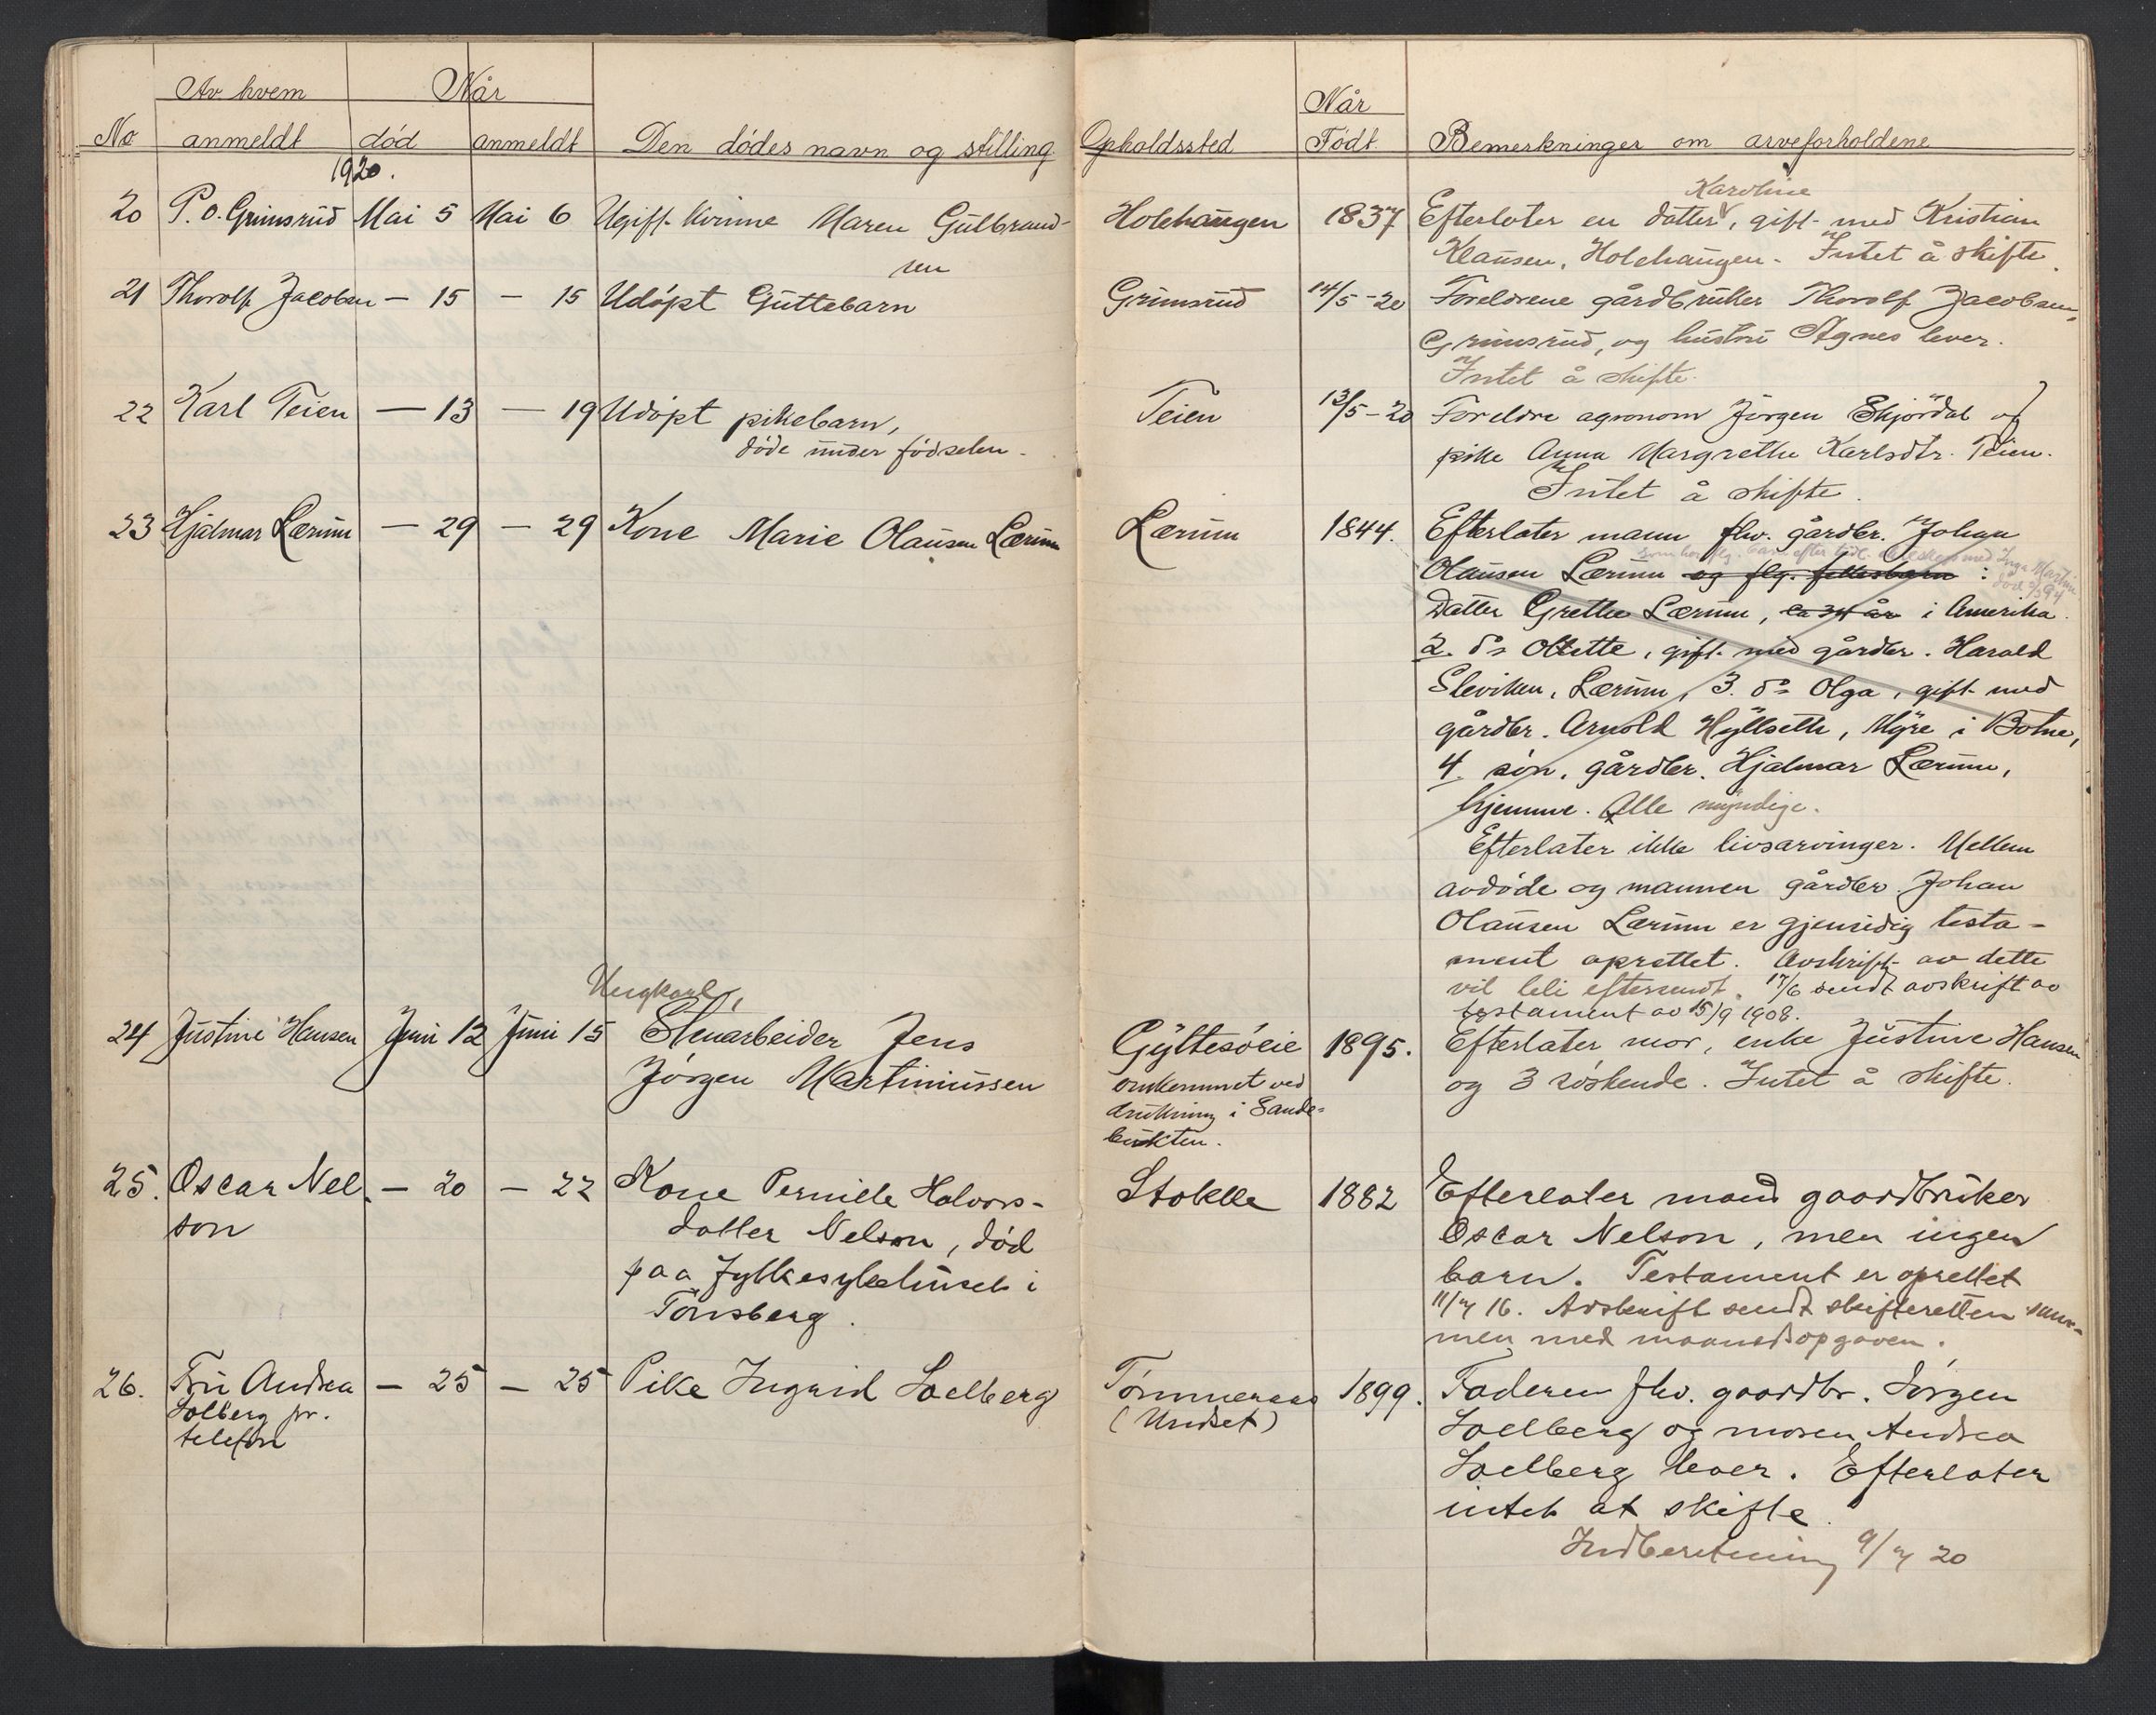 Av hvem Når Når
No anmeldt død anmeldt Den dødes navn og stilling Opholdssted Født Bemerkninger om arveforholdene
1920.
Karoline
20 P. O. Grimsrud Mai 5 Mai 6 Ugift kvinne Maren Gulbrand- Holehaugen 1837 Efterlater en datter, gift med Kristian
sen Klausen, Holehaugen. Intet å skifte.
21 Thorolf Jacobsen — 15 — 15 Udöpt Guttebarn Grimsrud 14/5-20 Foreldrene gårdbruker Thorolf Jacobsen,
Grimsrud, og hustru Agnes lever.
Intet å skifte.
22 Karl Teien — 13 — 19 Udöpt pikebarn, Teien 13/5-20 Foreldre agronom Jörgen Skjördal og
döde under födselen. pike Anna Margrethe Karlsdtr. Teien.
Intet å skifte.
23 Hjalmar Lærum — 29 — 29 Kone Marie Olausen Lærum Lærum 1844. Efterlater mann fhv. gårdbr. Johan
som har flg. barn efter tidl. ekteskap med Inga Martine
Olausen Lærum og flg. fellesbarn :
Datter Grethe Lærum, ca 34 år i Amerika.
2. do Olette, gift med gårdbr. Harald
Eleviken, Lærum, 3. do Olga, gift med
gårdbr. Arnold Hyllseth, Myre i Botne,
4. sön, gårdbr. Hjalmar Lærum,
hjemme. Alle myndige.
Efterlater ikke livsarvinger. Mellem
avdöde og mannen gårdbr. Johan
Olausen Lærum er gjensidig testa-
ment oprettet. Avskrift av dette
vil bli eftersendt. 17/6 sendt avskrift av
testament av 15/9 1908.
Ungkarl,
24 Justine Hansen Juni 12 Juni 15 Stuarbeider Jens Gyltesöeie 1895. Efterlater mor, enke Justine Hansen
Jörgen Martiniussen omkommet ved og 3 söskende. Intet å skifte.
drukning i Sande-
bukten.
25. Oscar Nel- — 20 — 22 Kone Pernille Halvors- Stokke 1882 Efterlater mand gaardbruker
son datter Nelson, död Oscar Nelson, men ingen
paa Fylkessykehuset i barn. Testament er oprettet
Tönsberg. 11/7 16. Avskrift sendt skifteretten sam-
men med maanedsopgaven.
26. Fru Andrea — 25 — 25 Pike Ingrid Solberg Tömmeraas 1899. Faderen fhv. gaardbr. Jörgen
Solberg pr. (Undset) Solberg og moren Andrea
telefon Solberg lever. Efterlater
intet at skifte.
Indberetning 9/7 20